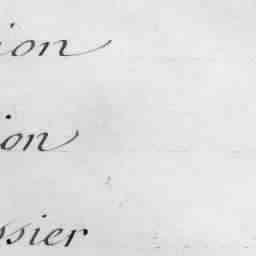 ion
ion
ssier